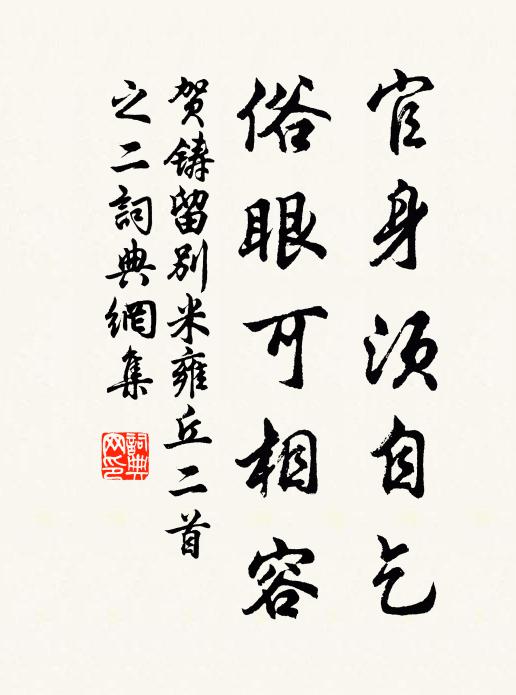 官身須自乞
俗眼可相容
賀鑄留別米雍丘二首
之二詞典網集
詞典
网印